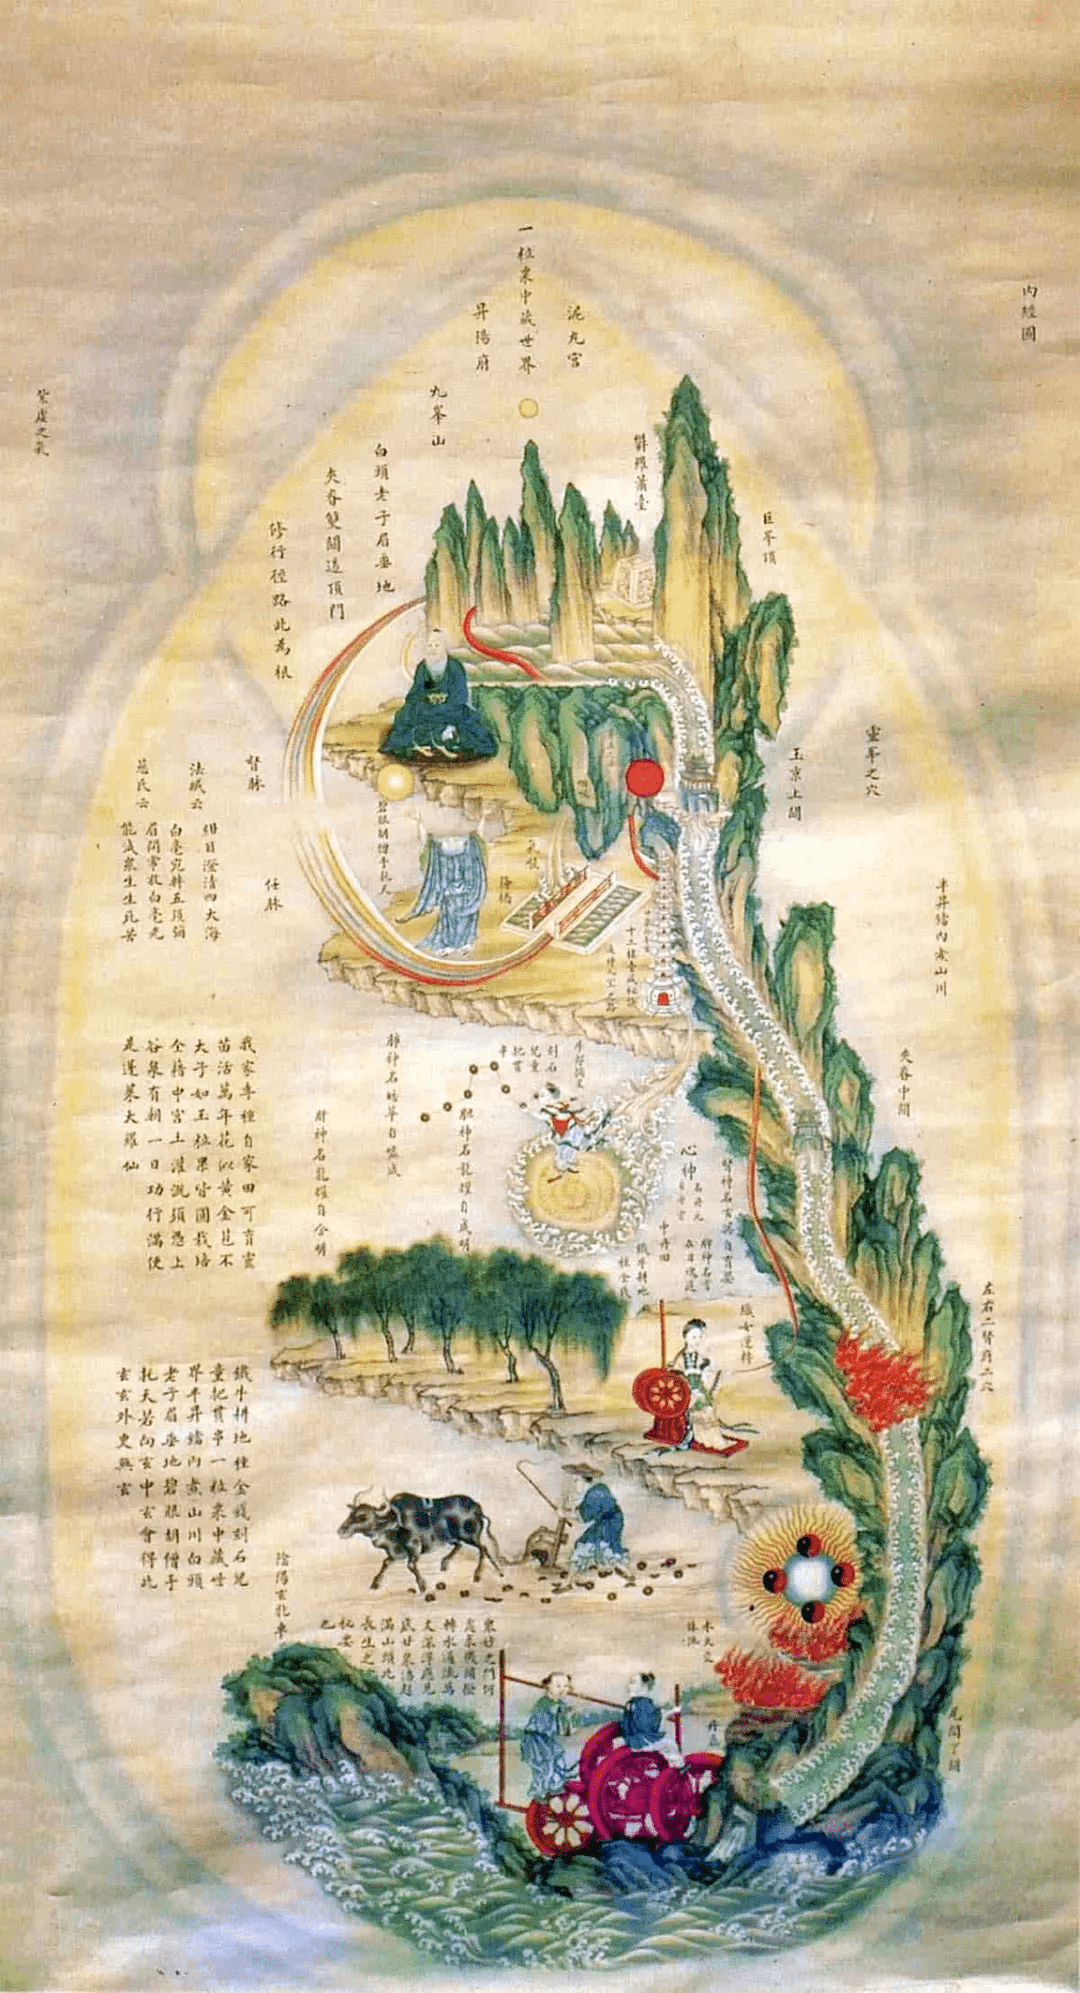 內經圖
一粒粟中藏世界
泥丸宮
昇陽府
九峯山
白頭老子眉垂地
夾脊雙關透頂門
修行徑路此為根
鬱羅蕭臺
巨峯頂
紫虛之氣
靈峯之穴
玉京上關
督脉
法藏云
慈氏云
任脉
紺目澄清四大海
白毫宛轉五須彌
眉間常放白毫光
能滅衆生生死苦
碧眼胡僧手托天
降橋
十二樓臺藏秘訣
半升鐺內煮山川
夾脊中關
肺神名皓華自虛成
牛郎橋星
刻石
兒童
把貫
串
膽神名龍耀自威明
肝神名龍耀自含明
心神
中丹田
鐵牛耕地
種金錢
織女運轉
我家專種自家田可育靈
苗活萬年花似黃金苞不
大子如玉粒果皆圓栽培
全藉中宮土灌溉須憑上
谷泉有朝一日功行滿便
是蓬萊大羅仙
左右二腎府之穴
鐵牛耕地種金錢刻石兒
童把貫串一粒粟中藏世
界半升鐺內煮山川白頭
老子眉垂地碧眼胡僧手
托天若向玄中玄會得此
玄玄外更無玄
陰陽玄牝車
尾閭下關